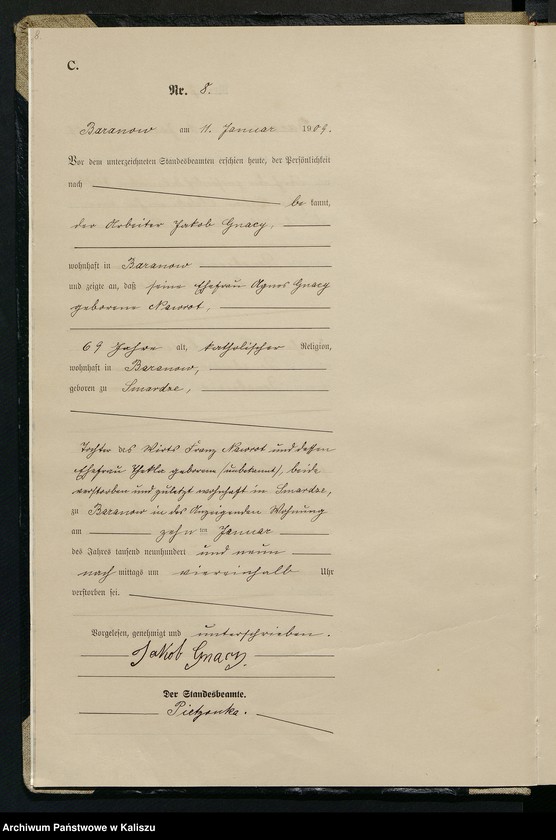 8
C.
Nr. 8.
Baranow am 11. Januar 1909.
Vor dem unterzeichneten Standesbeamten erschien heute, der Persönlichkeit
nach
be kannt,
der Arbeiter Jakob Gnacy,
wohnhaft in Baranow
und zeigte an, daß seine Ehefrau Agnes Gnacy
geborene Nawrot,
69 Jahre alt, katholischer Religion,
wohnhaft in Baranow,
geboren zu Smardze,
Tochter des Wirts Franz Nawrot und dessen
Ehefrau Thekla geborene (unbekannt), beide
verstorben und zuletzt wohnhaft in Smardze,
zu Baranow in des Anzeigenden Wohnung
am zehnten Januar
des Jahres tausend neunhundert und neun
nach mittags um viereinhalb Uhr
verstorben sei.
Vorgelesen, genehmigt und unterschrieben.
Jakob Gnacy.
Der Standesbeamte.
Pietzonka.
Archiwum Państwowe w Kaliszu